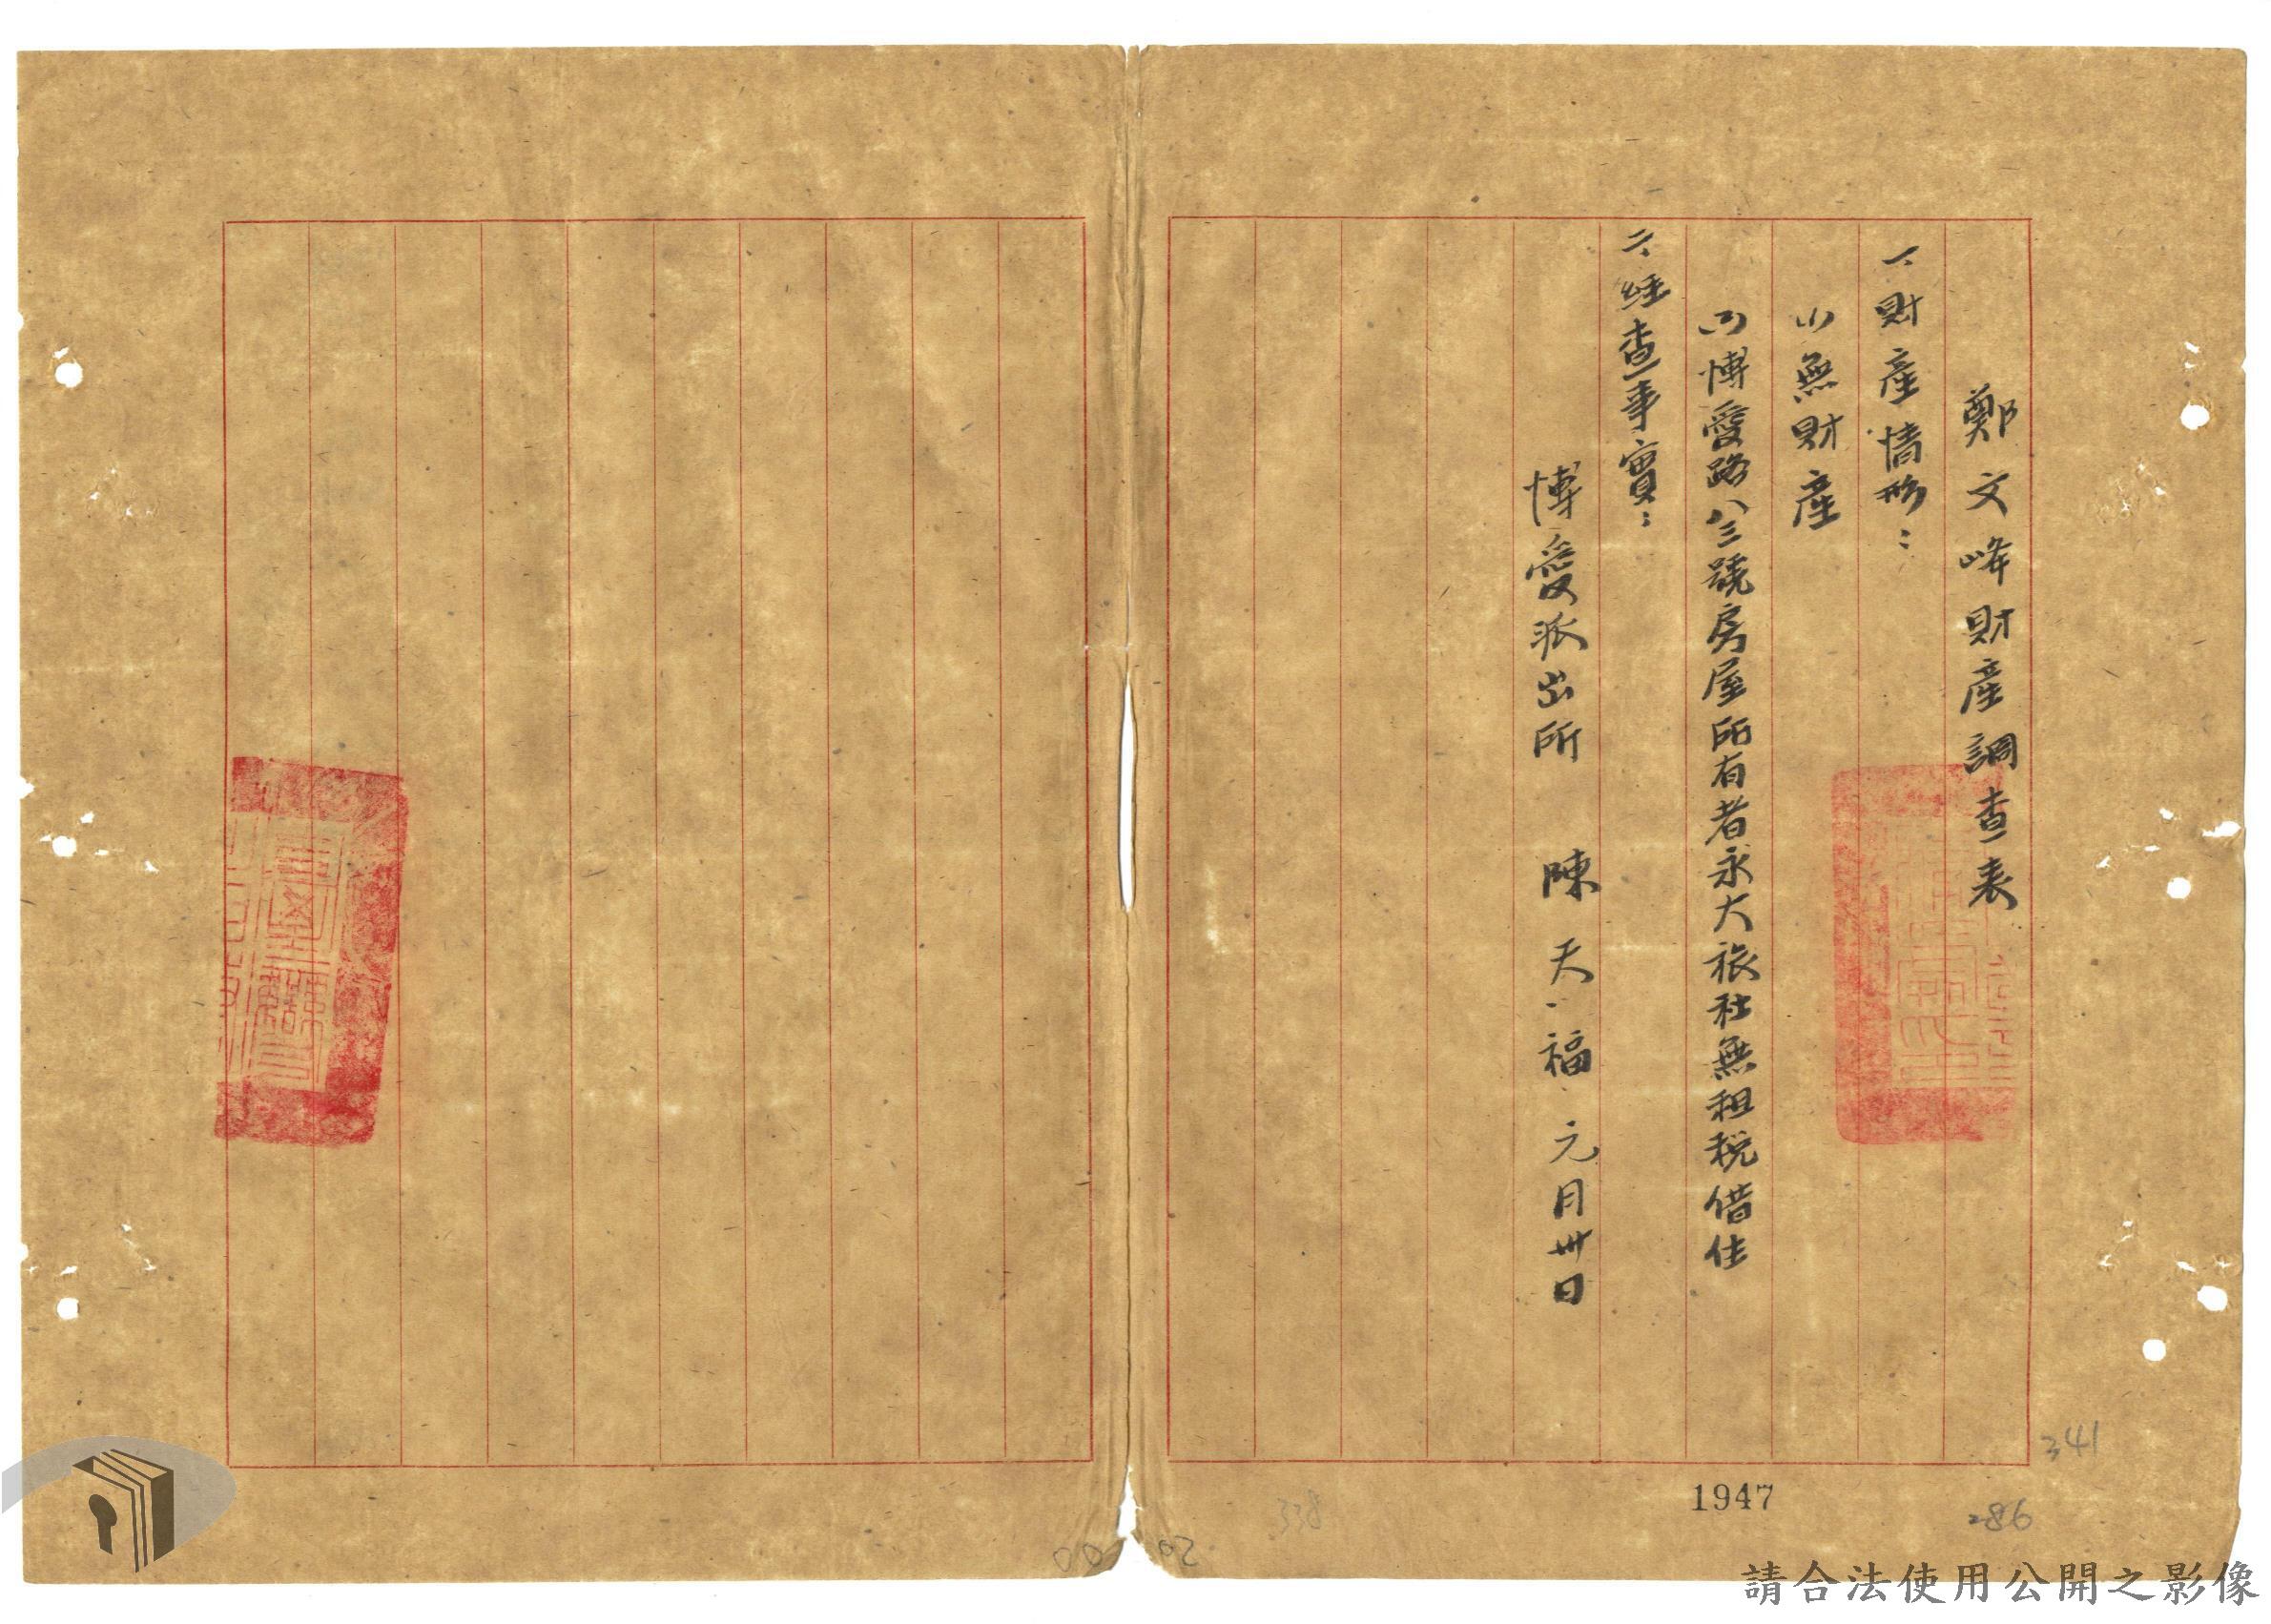 鄭文峰財產調查表
一、財產情形：
(1)無財產
(2)博愛路八三號房屋所有者永大旅社無租稅借住
二、經查事實：
博愛派出所　陳天福　元月卅日
341
1947
286
338
請合法使用公開之影像